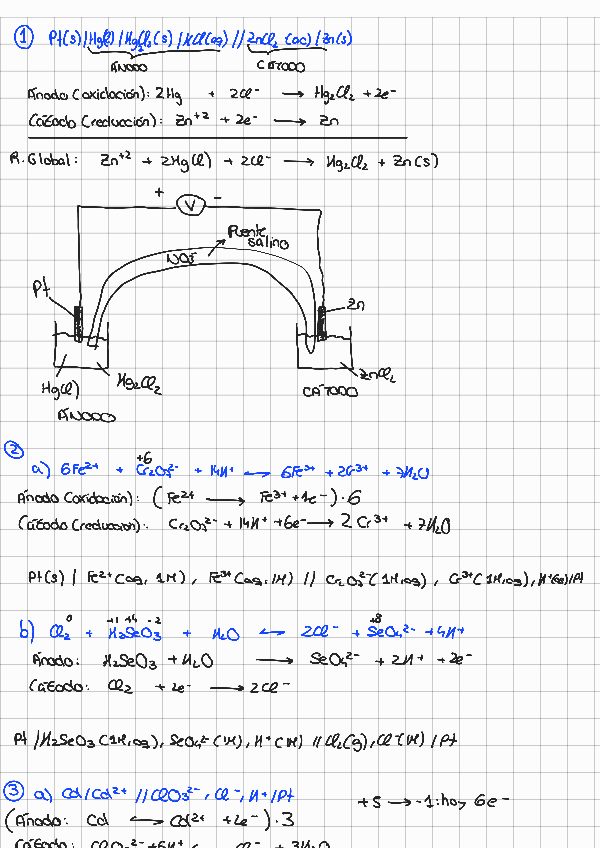 ① Pt(s)/Hg(l)/Hg2Cl2(s)/KCl(aq)//ZnCl2(ac)/Zn(s)
ÁNODO CÁTODO
Ánodo (oxidación): 2Hg + 2Cl⁻ → Hg2Cl2 + 2e⁻
Cátodo (reducción): Zn⁺² + 2e⁻ → Zn
R. Global: Zn⁺² + 2Hg(l) + 2Cl⁻ → Hg2Cl2 + Zn(s)
+ V -
Puente
salino
Pt
Zn
Hg(l) Hg2Cl2
ZnCl2
ÁNODO
CÁTODO
②
+6
a) 6Fe²⁺ + Cr2O7²⁻ + 14H⁺ ↔ 6Fe³⁺ + 2Cr³⁺ + 7H2O
Ánodo (oxidación): (Fe²⁺ → Fe³⁺ + 1e⁻)·6
Cátodo (reducción): Cr2O7²⁻ + 14H⁺ + 6e⁻ → 2Cr³⁺ + 7H2O
Pt(s) / Fe²⁺(aq, 1M), Fe³⁺(aq, 1M) // Cr2O7²⁻(1M, aq), Cr³⁺(1M, aq), H⁺ /Pt
0 +1 +4 -2 +8
b) Cl2 + H2SeO3 + H2O ↔ 2Cl⁻ + SeO4²⁻ + 4H⁺
Ánodo: H2SeO3 + H2O → SeO4²⁻ + 2H⁺ + 2e⁻
Cátodo: Cl2 + 2e⁻ → 2Cl⁻
Pt /H2SeO3(1M, aq), SeO4²⁻(1M), H⁺(1M) // Cl2(g), Cl⁻(1M) / Pt
③ a) Cd/Cd²⁺ // ClO3⁻, Cl⁻, H⁺/Pt
+5 → -1: hay 6e⁻
(Ánodo: Cd ↔ Cd²⁺ + 2e⁻)·3